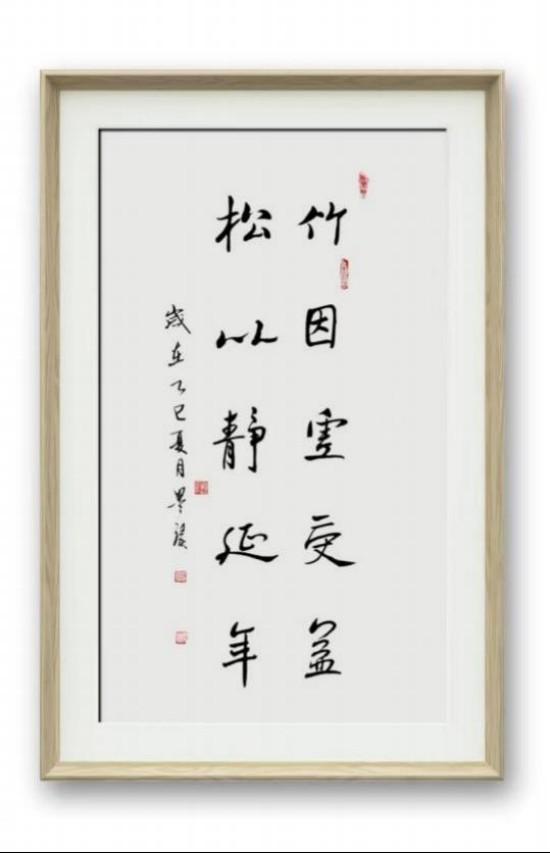 竹因虚受益
松以静延年
岁在乙巳夏月